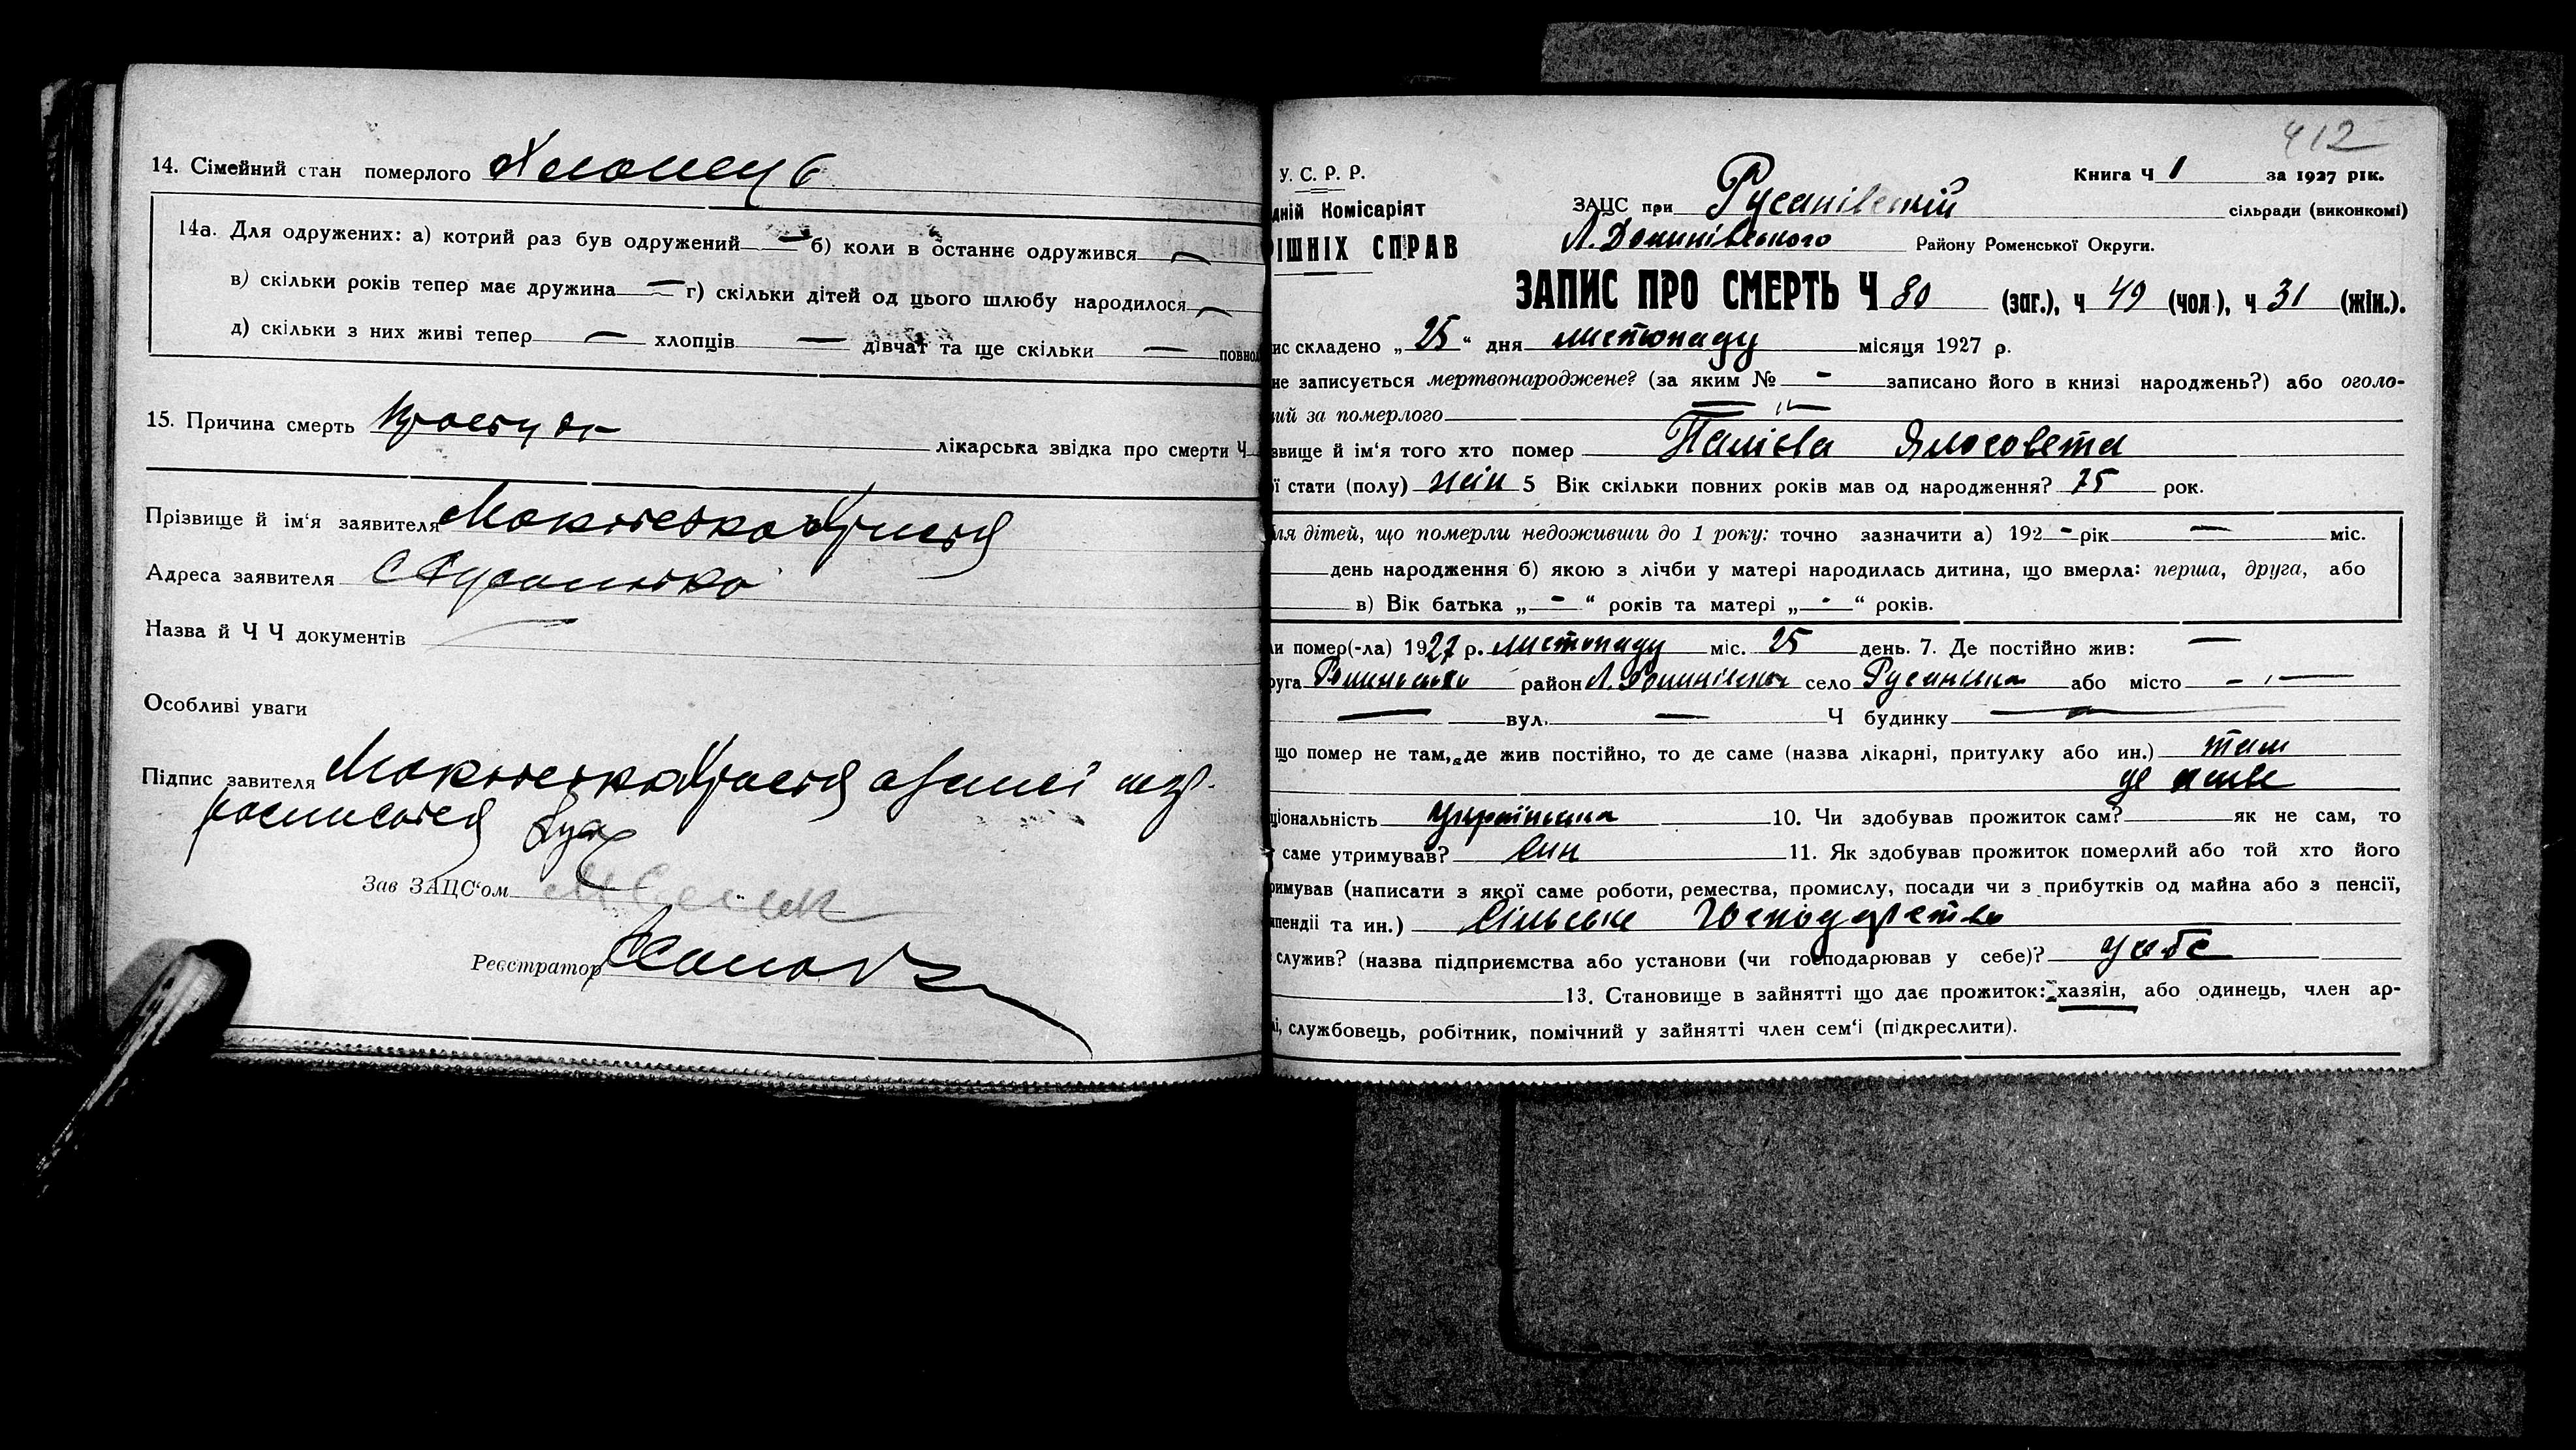 14. Сімейний стан померлого Хлопець
14а. Для одружених: а) котрий раз був одружений — б) коли в останнє одружився —
в) скільки років тепер має дружина — г) скільки дітей од цього шлюбу народилося —
д) скільки з них живі тепер — хлопців — дівчат та ще скільки — повно
15. Причина смерть Простуда лікарська звідка про смерти Ч
Прізвище й ім‘я заявителя Христя
Адреса заявителя С Русанівка
Назва й Ч Ч документів —
Особливі уваги
Підпис завителя Христя
Зав ЗАЦС‘ом
Реєстратор
412
У. С. Р. Р.
Книга Ч 1 за 1927 рік.
дній Комісаріят
ЗАЦС при Русанівській сільради (виконкомі)
ІШНІХ СПРАВ
Л. Долинівського Району Роменської Округи.
ЗАПИС ПРО СМЕРТЬ Ч 80 (заг.), ч 49 (чол.), ч 31 (жін.).
ис складено „25“ дня листопаду місяця 1927 р.
не записується мертвонароджене? (за яким № - записано його в книзі народжень?) або оголо-
ий за померлого —
звище й ім‘я того хто помер Палієва Ялосовета
ї стати (полу) жін 5 Вік скільки повних років мав од народження? 75 рок.
ля дітей, що померли недоживши до 1 року: точно зазначити а) 192 - рік — міс.
день народження б) якою з лічби у матері народилась дитина, що вмерла: перша, друга, або
в) Вік батька „-“ років та матері „-“ років.
и помер(-ла) 1927 р. листопаду міс. 25 день. 7. Де постійно жив: —
руга Роменська район Л. Долинівськ село Русанівка або місто —
— вул. — Ч будинку —
що помер не там, де жив постійно, то де саме (назва лікарні, притулку або ин.) там
де живе
ціональність Українка 10. Чи здобував прожиток сам? як не сам, то
саме утримував? Син 11. Як здобував прожиток померлий або той хто його
римував (написати з якої саме роботи, ремества, промислу, посади чи з прибутків од майна або з пенсії,
пендії та ин.) Сільське Господарство
служив? (назва підприємства або установи (чи господарював у себе)? у себе
13. Становище в зайнятті що дає прожиток: хазяїн, або одинець, член ар-
і, службовець, робітник, помічний у зайнятті член сем‘ї (підкреслити).